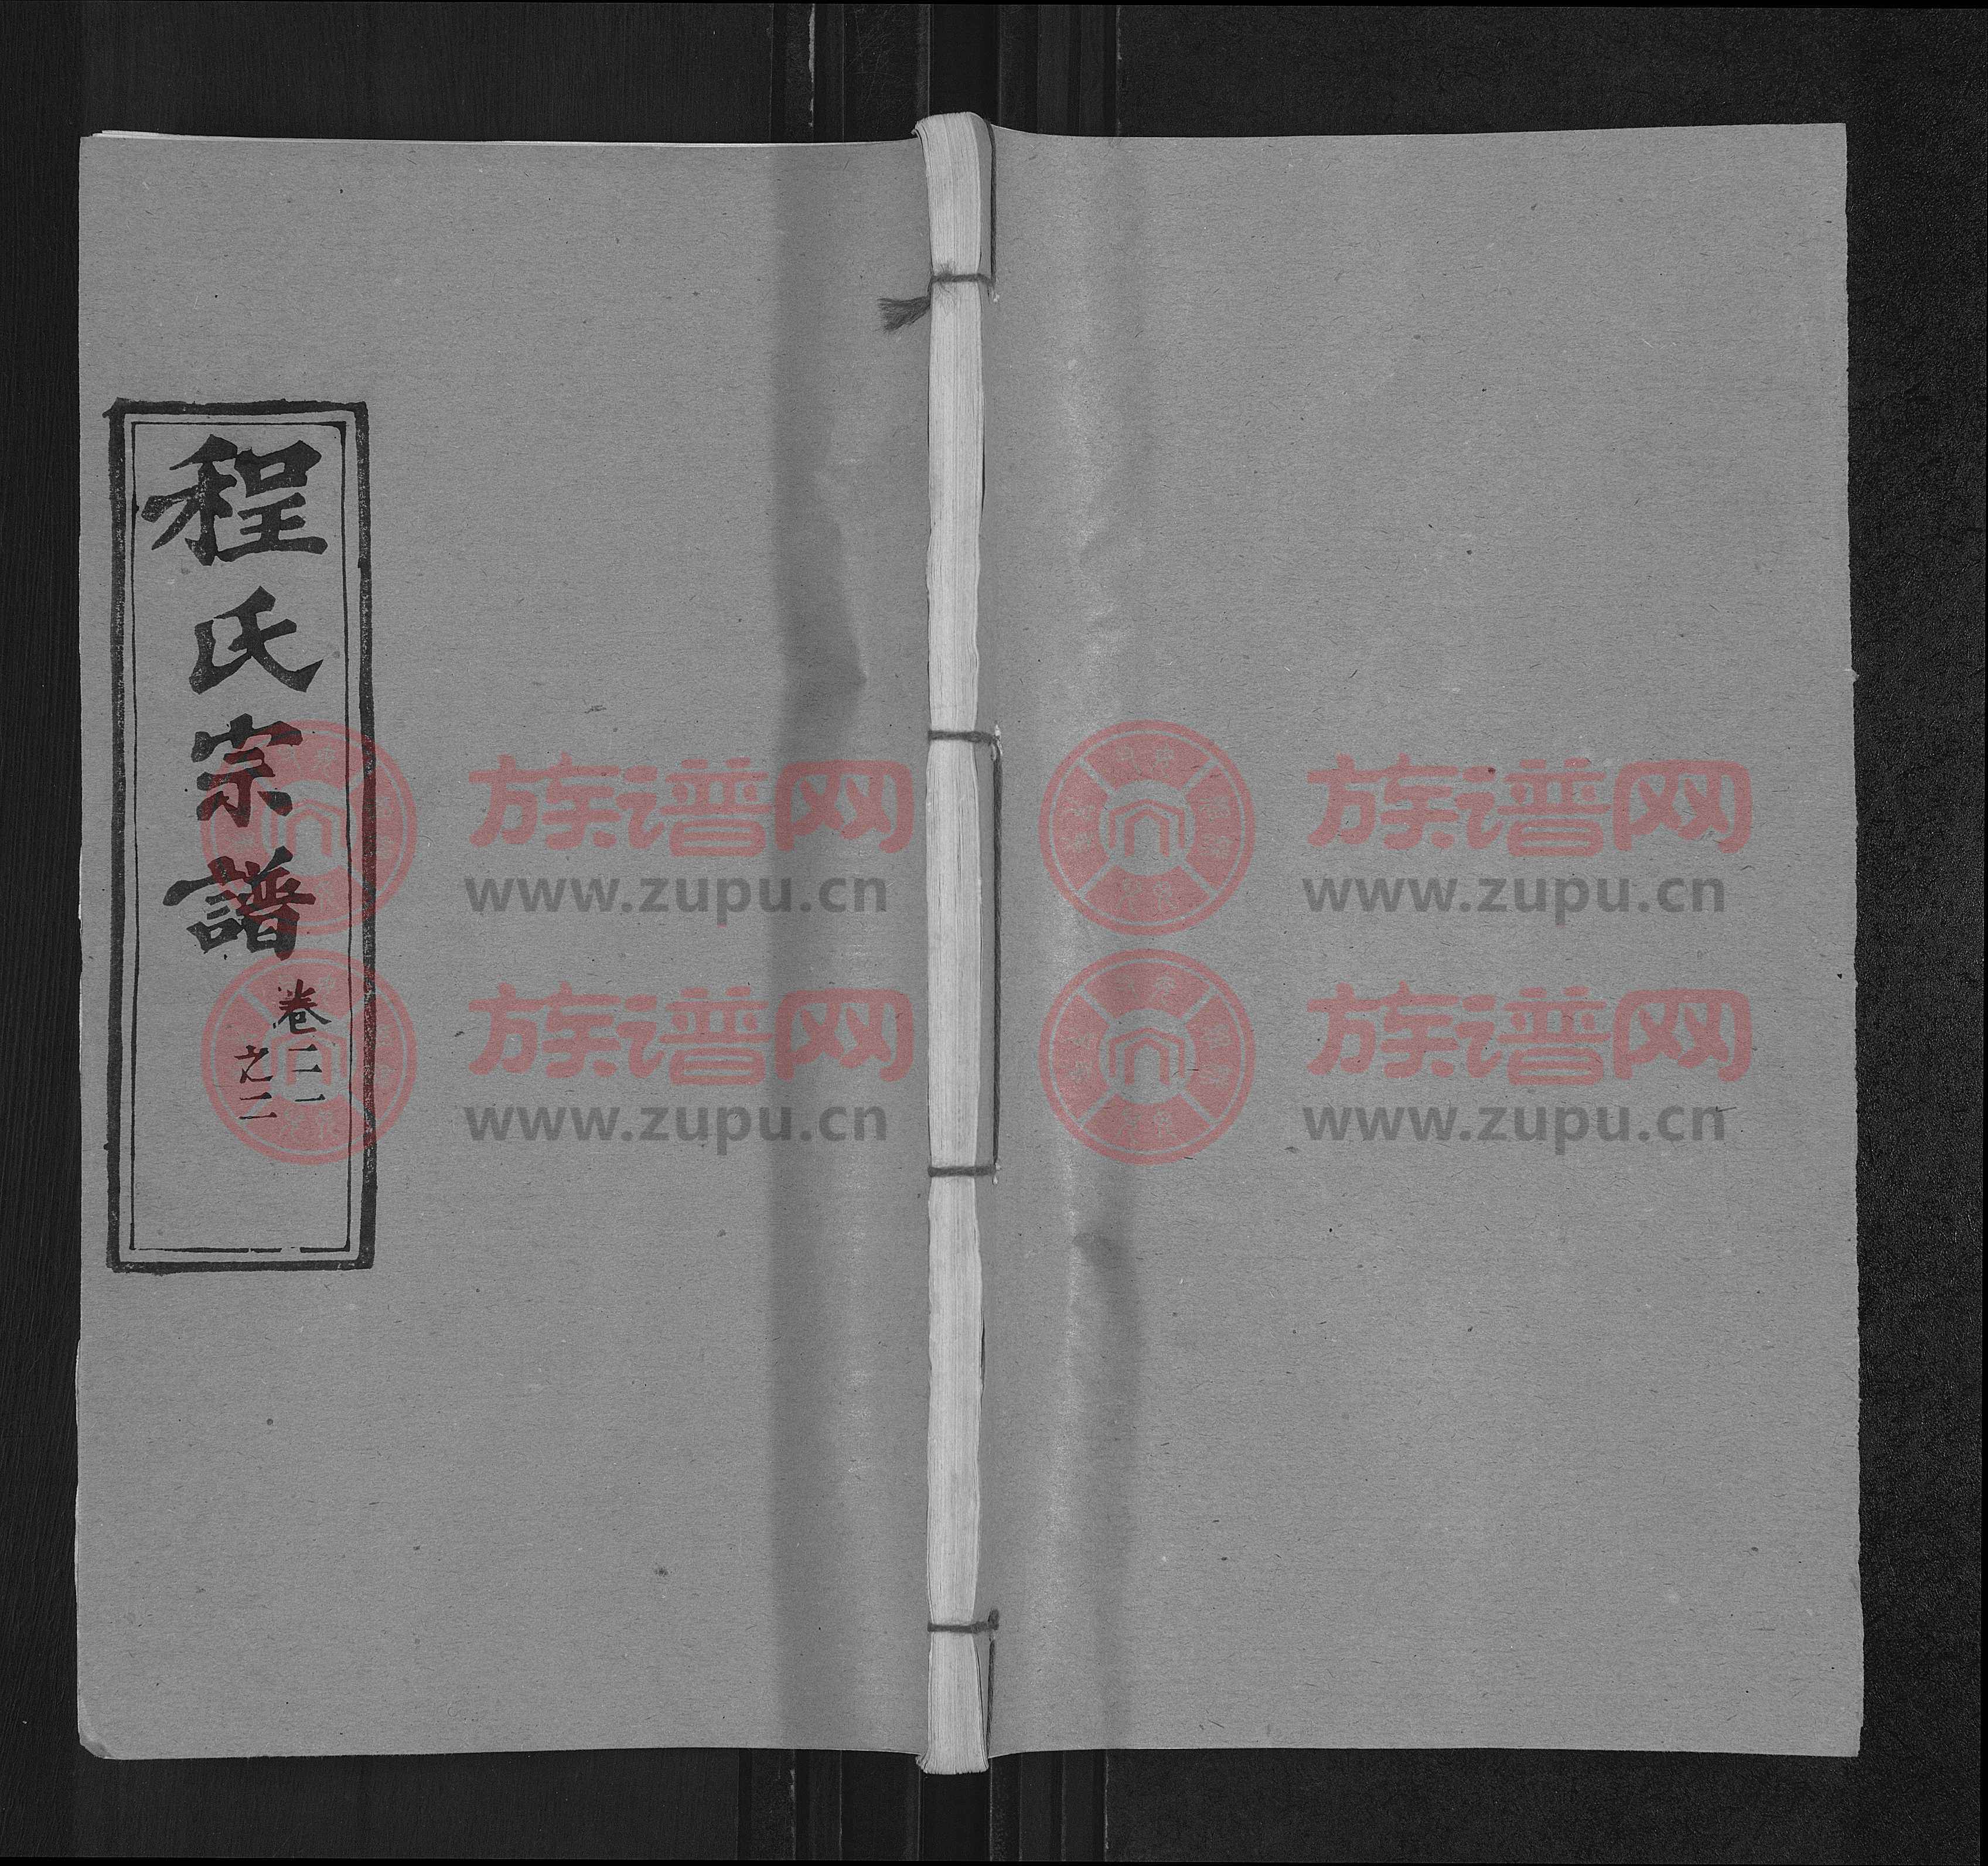 程氏宗譜
卷二一
之二
族谱网
www.zupu.cn
族谱网
www.zupu.cn
族谱网
www.zupu.cn
族谱网
www.zupu.cn